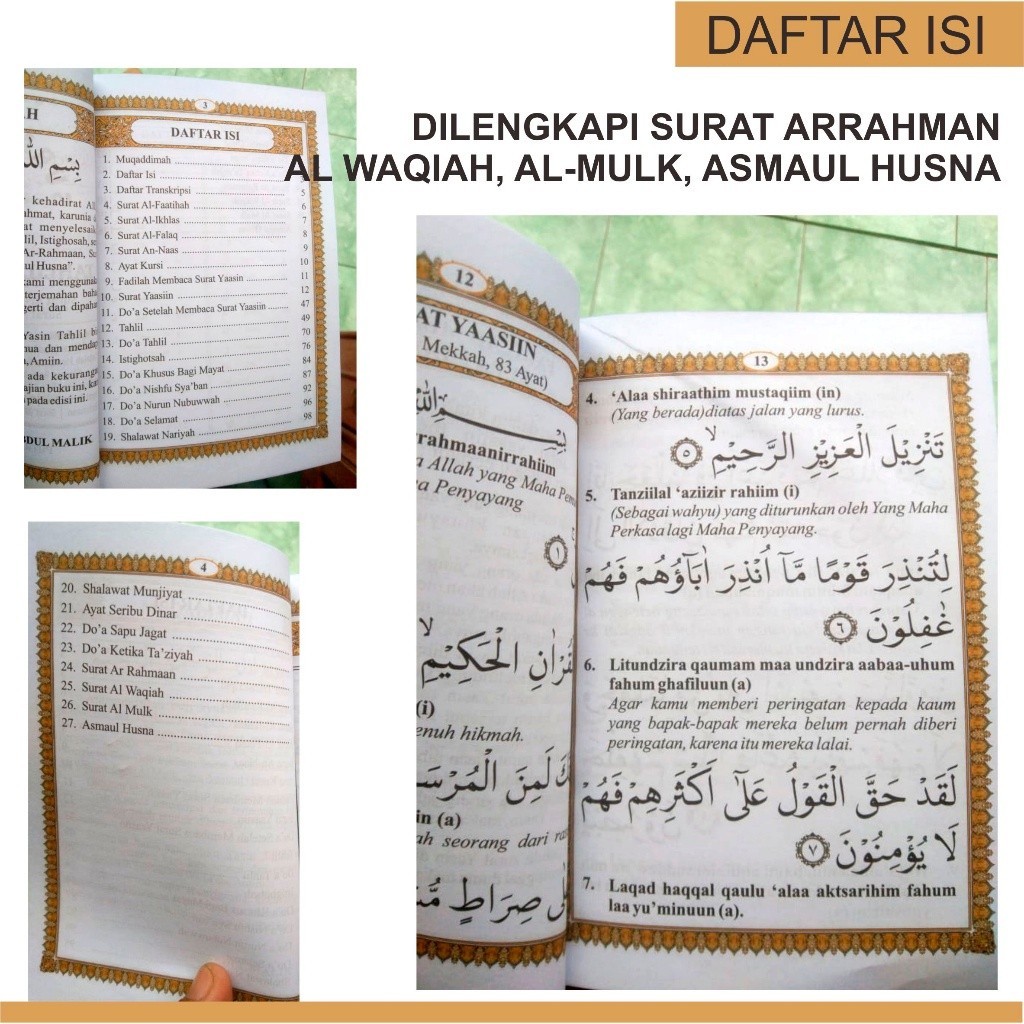 DAFTAR ISI
DILENGKAPI SURAT ARRAHMAN
AL WAQIAH, AL-MULK, ASMAUL HUSNA
3
DAFTAR ISI
1. Muqaddimah
2. Daftar Isi
3. Daftar Transkripsi 5
4. Surat Al-Faatihah 6
5. Surat Al-Ikhlas 7
6. Surat Al-Falaq 8
7. Surat An-Naas 9
8. Ayat Kursi 10
9. Fadilah Membaca Surat Yaasin 11
10. Surat Yaasiin 12
11. Do'a Setelah Membaca Surat Yaasiin 47
12. Tahlil 49
13. Do'a Tahlil 70
14. Istighotsah 76
15. Do'a Khusus Bagi Mayat 84
16. Do'a Nishfu Sya'ban 87
17. Do'a Nurun Nubuwwah 92
18. Do'a Selamat 96
19. Shalawat Nariyah 98
AH
بِسْمِ اللّٰه
kehadirat
karunia
menyelesaik
Istighosah,
Ar-Rahmaan,
Husna".
kami menggunak
terjemahan
dan
Yasin Tahlil
Amiin.
ada kekuranga
buku ini,
pada edisi ini.
ABDUL MALIK
4
20. Shalawat Munjiyat
21. Ayat Seribu Dinar
22. Do'a Sapu Jagat
23. Do'a Ketika Ta'ziyah
24. Surat Ar Rahmaan
25. Surat Al Waqiah
26. Surat Al Mulk
27. Asmaul Husna
12
AT YAASIIN
Mekkah, 83 Ayat)
rrahmaanirrahiim
Allah yang Maha
Penyayang
١
الْحَكِيْمِ
(i)
enuh hikmah.
لَمِنَ الْمُرْسَ
in (a)
ah seorang dari
صِرَاطٍ
13
4. 'Alaa shiraathim mustaqiim (in)
(Yang berada)diatas jalan yang lurus.
تَنْزِيْلَ الْعَزِيْزِ الرَّحِيْمِۙ ٥
5. Tanziilal 'aziizir rahiim (i)
(Sebagai wahyu) yang diturunkan oleh Yang Maha
Perkasa lagi Maha Penyayang.
لِتُنْذِرَ قَوْمًا مَّآ اُنْذِرَ اٰبَاۤؤُهُمْ فَهُمْ
غٰفِلُوْنَ ٦
6. Litundzira qaumam maa undzira aabaa-uhum
fahum ghafiluun (a)
Agar kamu memberi peringatan kepada kaum
yang bapak-bapak mereka belum pernah diberi
peringatan, karena itu mereka lalai.
لَقَدْ حَقَّ الْقَوْلُ عَلٰٓى اَكْثَرِهِمْ فَهُمْ
لَا يُؤْمِنُوْنَ ٧
7. Laqad haqqal qaulu 'alaa aktsarihim fahum
laa yu'minuun (a).